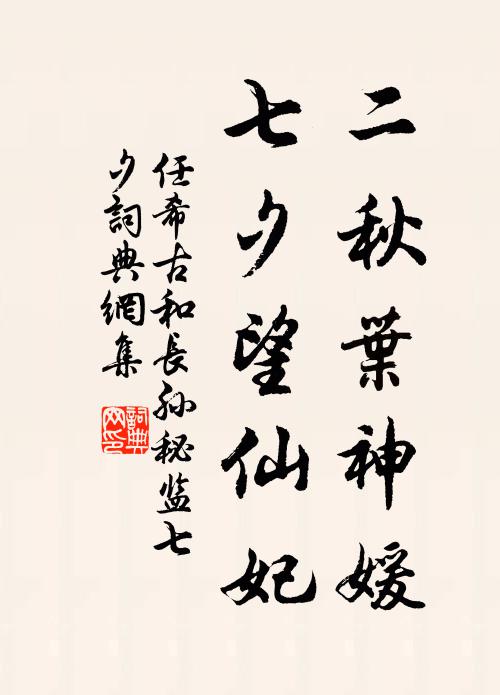 二秋葉神媛
七夕望仙妃
任希古和長孫秘监七
夕詞典網集
詞典
网印